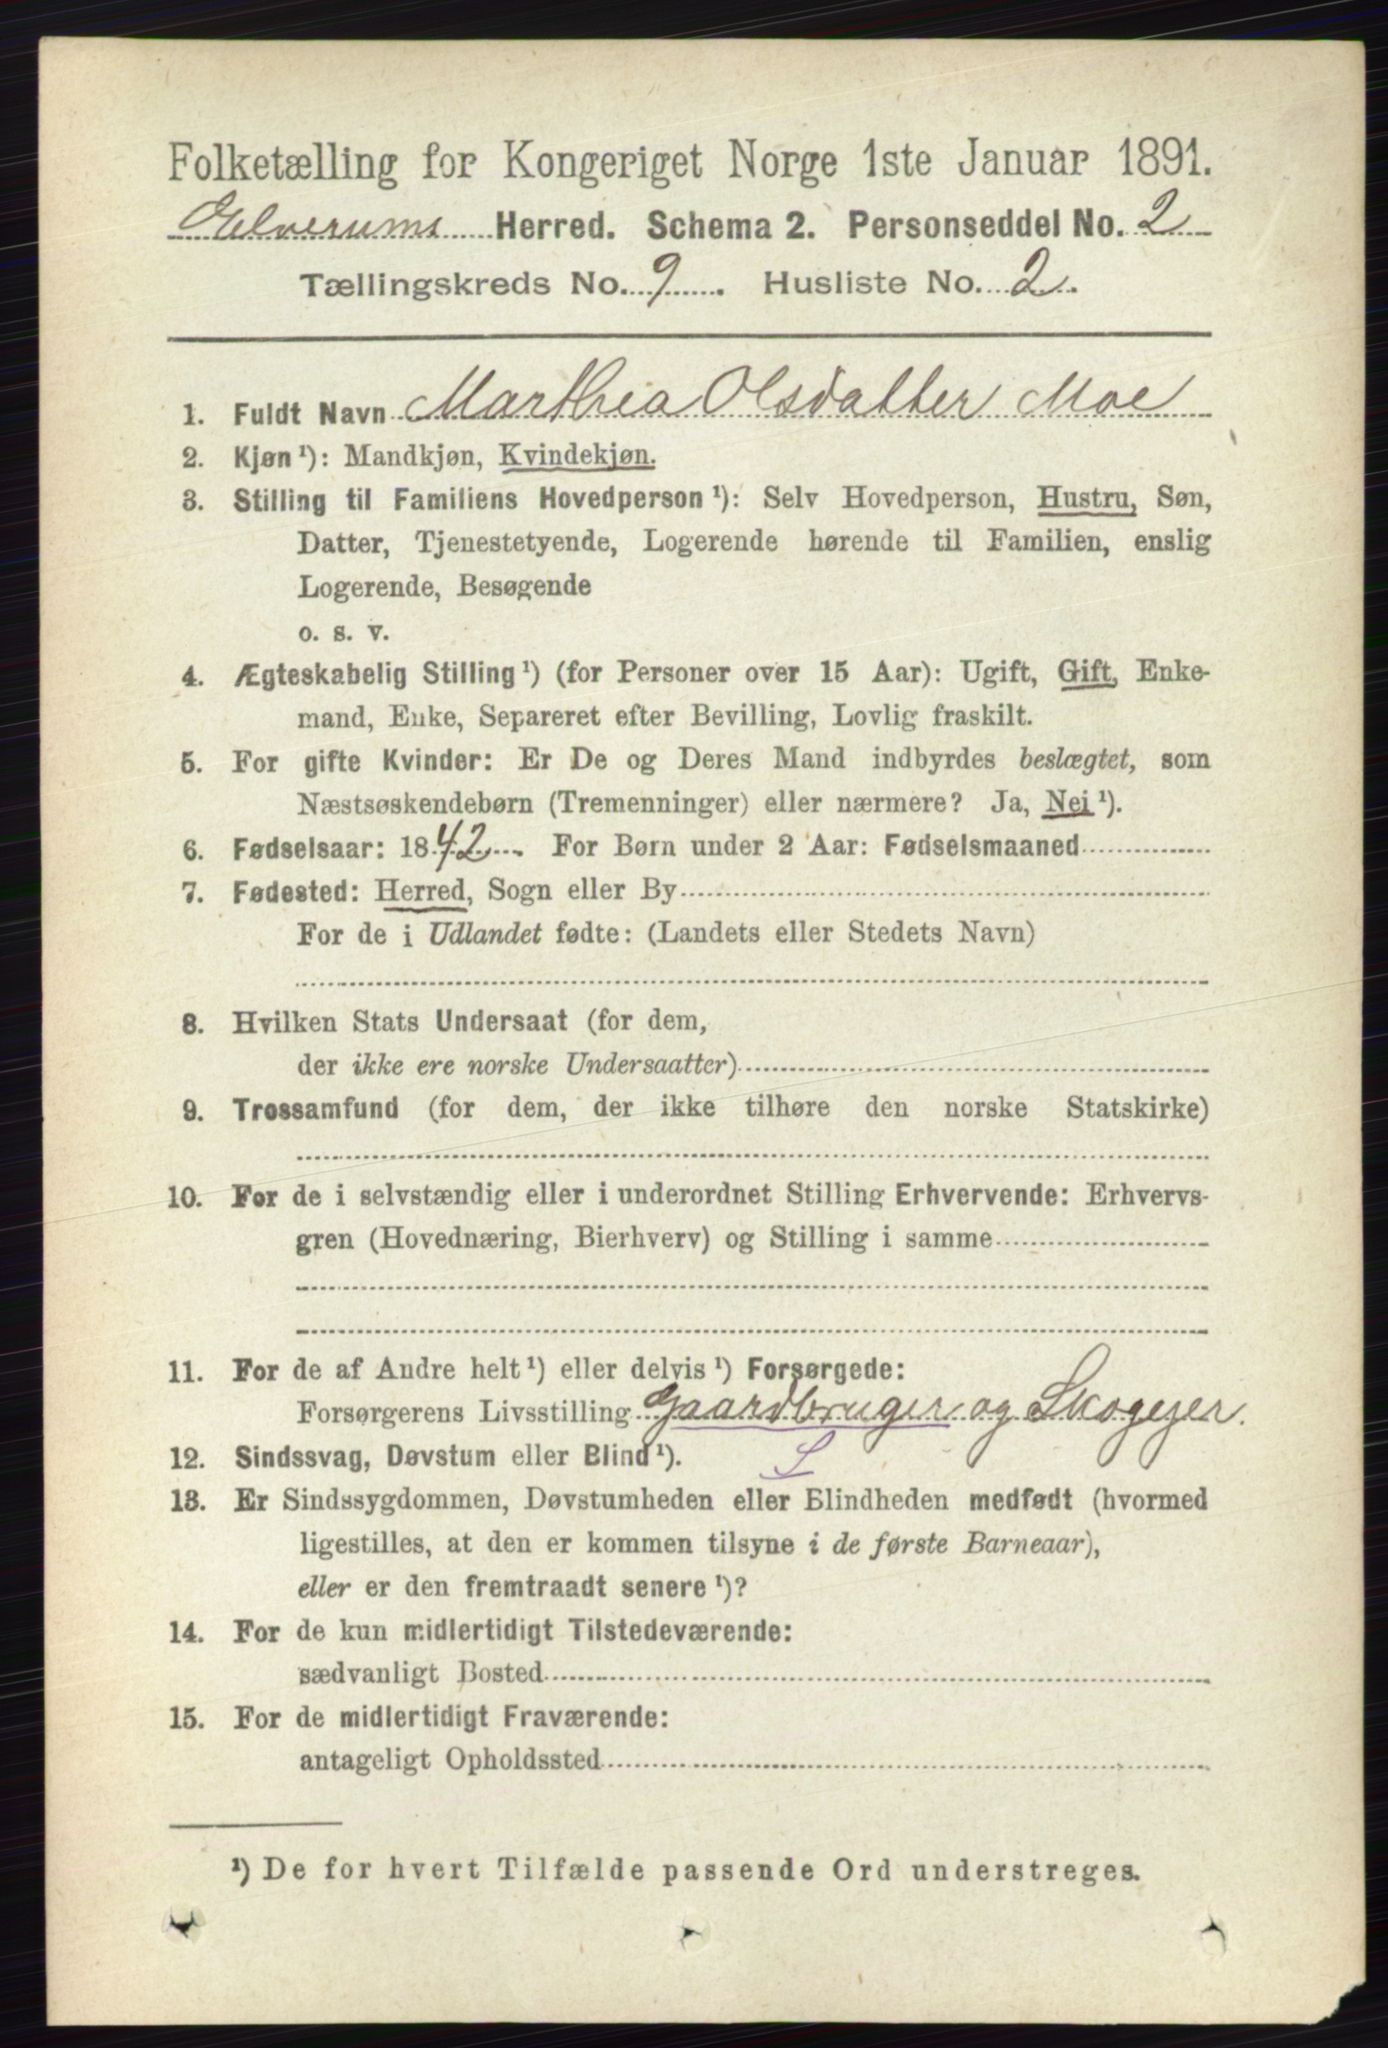 Folketælling for Kongeriget Norge 1ste Januar 1891.
Elverums Herred. Schema 2. Personseddel No. 2
Tællingskreds No. 9. Husliste No. 2.
1. Fuldt Navn Marthea Olsdatter Moe
2. Kjøn ¹): Mandkjøn, Kvindekjøn.
3. Stilling til Familiens Hovedperson ¹): Selv Hovedperson, Hustru, Søn,
Datter, Tjenestetyende, Logerende hørende til Familien, enslig
Logerende, Besøgende
o. s. v.
4. Ægteskabelig Stilling ¹) (for Personer over 15 Aar): Ugift, Gift, Enke-
mand, Enke, Separeret efter Bevilling, Lovlig fraskilt.
5. For gifte Kvinder: Er De og Deres Mand indbyrdes beslægtet, som
Næstsøskendebørn (Tremenninger) eller nærmere? Ja, Nei ¹).
6. Fødselsaar: 1842. For Børn under 2 Aar: Fødselsmaaned
7. Fødested: Herred, Sogn eller By
For de i Udlandet fødte: (Landets eller Stedets Navn)
8. Hvilken Stats Undersaat (for dem,
der ikke ere norske Undersaatter)
9. Trossamfund (for dem, der ikke tilhøre den norske Statskirke)
10. For de i selvstændig eller i underordnet Stilling Erhvervende: Erhvervs-
gren (Hovednæring, Bierhverv) og Stilling i samme
11. For de af Andre helt ¹) eller delvis ¹) Forsørgede:
Forsørgerens Livsstilling Gaardbruger og Skogejer.
12. Sindssvag, Døvstum eller Blind ¹). S
13. Er Sindssygdommen, Døvstumheden eller Blindheden medfødt (hvormed
ligestilles, at den er kommen tilsyne i de første Barneaar),
eller er den fremtraadt senere ¹)?
14. For de kun midlertidigt Tilstedeværende:
sædvanligt Bosted
15. For de midlertidigt Fraværende:
antageligt Opholdssted
¹) De for hvert Tilfælde passende Ord understreges.